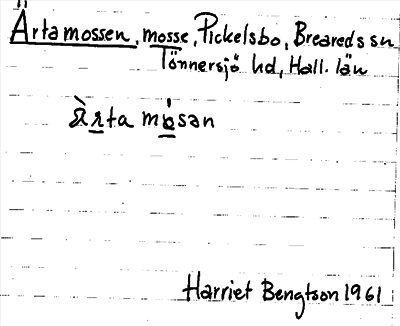 Ärtamossen, mosse, Pickelsbo, Breareds sn
Tönnersjö hd, Hall. län
ä̀rta mósan
Harriet Bengtson 1961